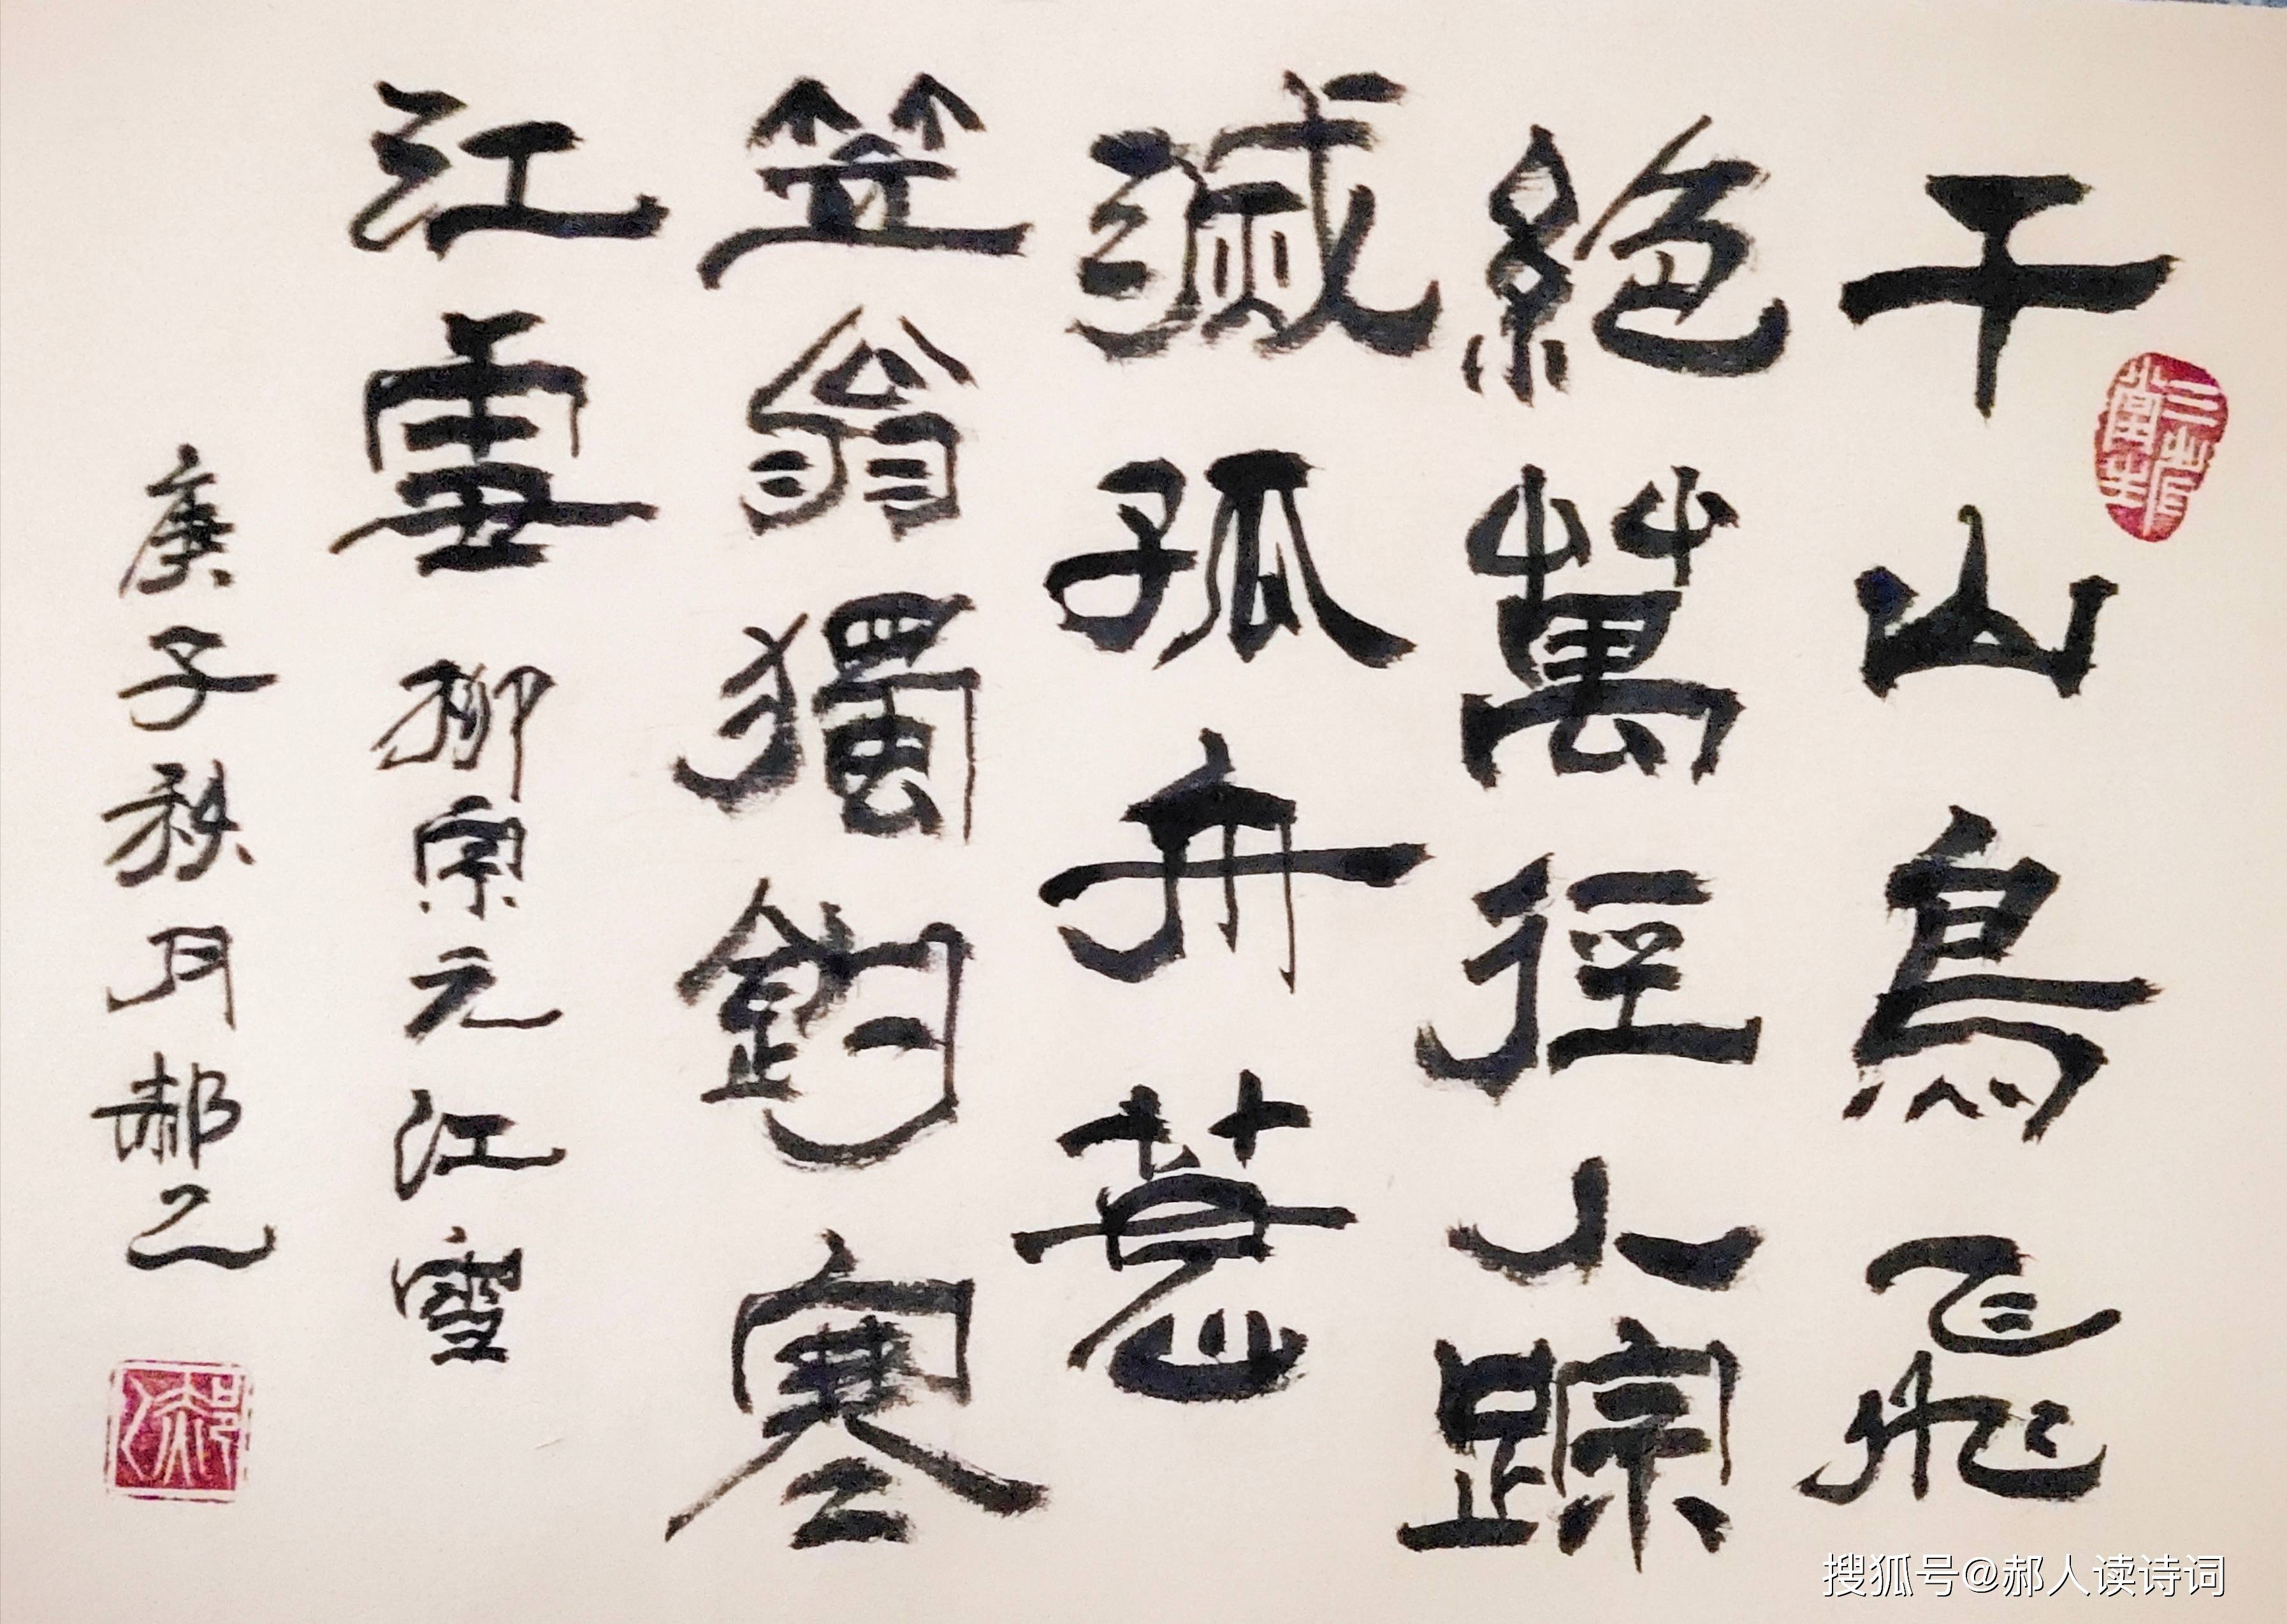 千山鳥飛
絕萬徑人踪
滅孤舟蓑
笠翁獨釣寒
江雪 柳宗元江雪
庚子秋月郝
搜狐号@郝人读诗词